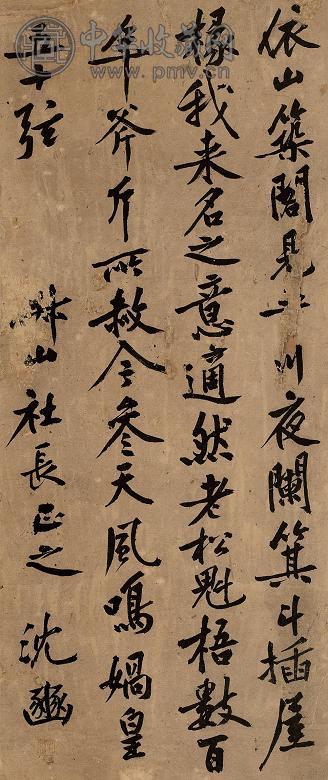 中华收藏网
www.pmv.cn
依山築閣見平川夜闌箕斗插屋
椽我来名之意適然老松魁梧數百
年斧斤所赦今參天風鳴媧皇
五十弦
山社長正之 沈